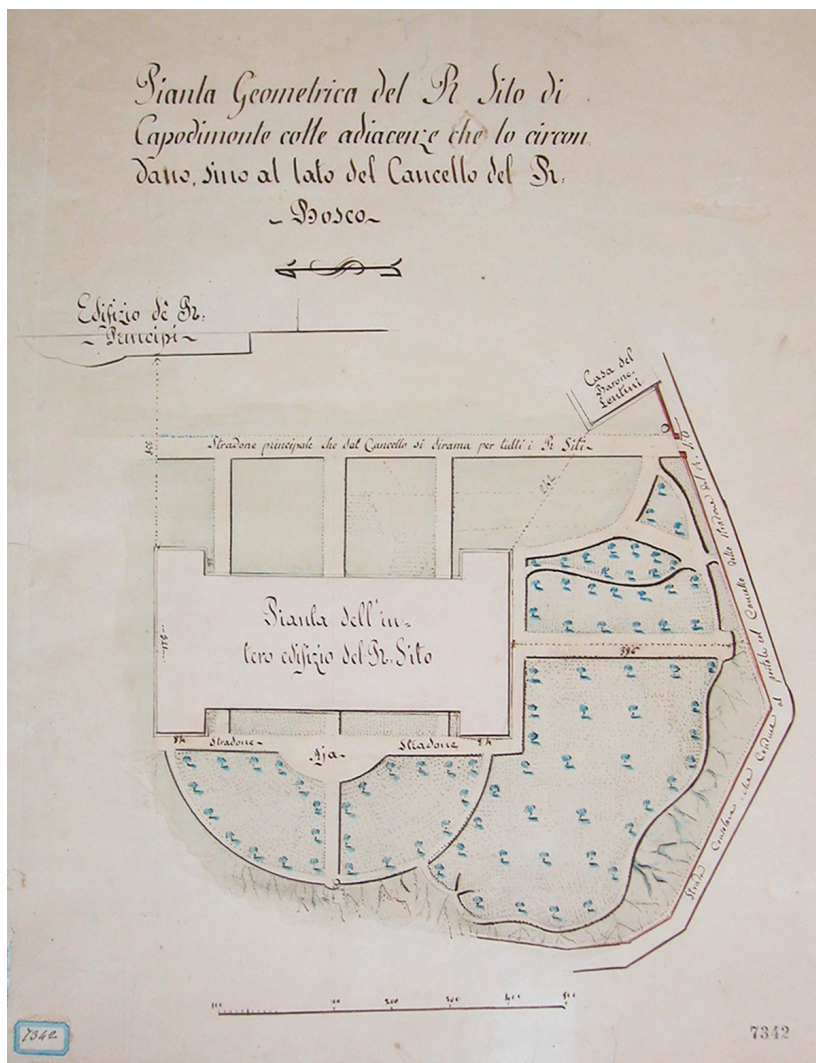 Pianta Geometrica del R Sito di
Capodimonte colle adiacenze che lo circon
dano, sino al lato del Cancello del R.
~ Bosco ~
Edifizio dè R.
~ Principi ~
Casa del
Barone
Lentini
Stradone principale che dal Cancello si dirama per tutti i R Siti ~
242
Pianta dell'in-
tero edifizio del R. Sito
396
Stradone
Aja
Stradone
84
84
Strada Consolare che Conduce al portile ed Cancello dello Stradone del R. Sito
100
100
200
300
400
500
7342
7342